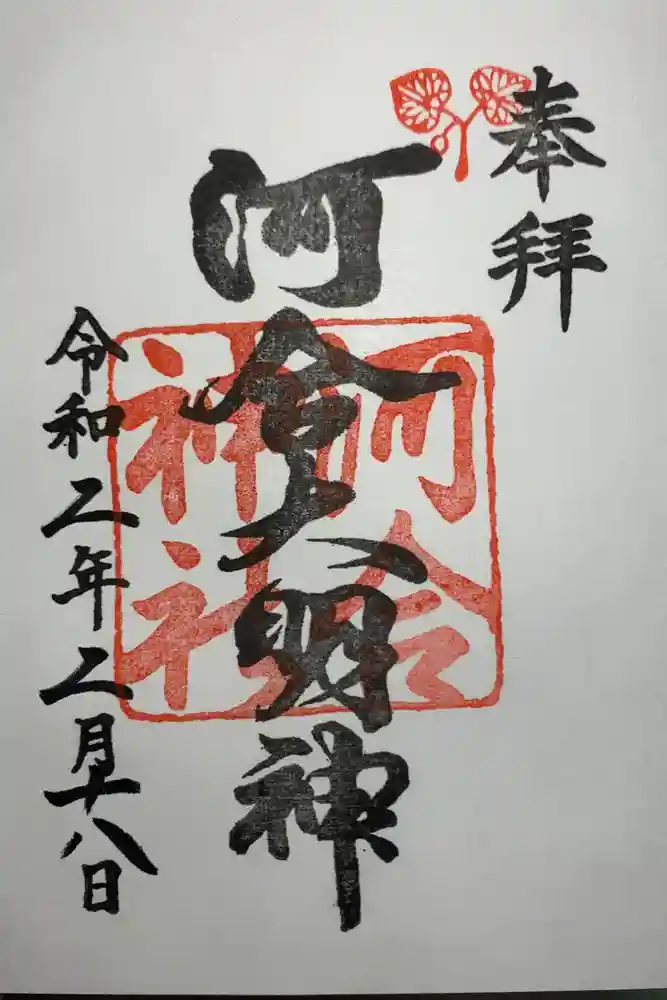 奉拝
河會大明神
河合
神社
令和二年二月十八日